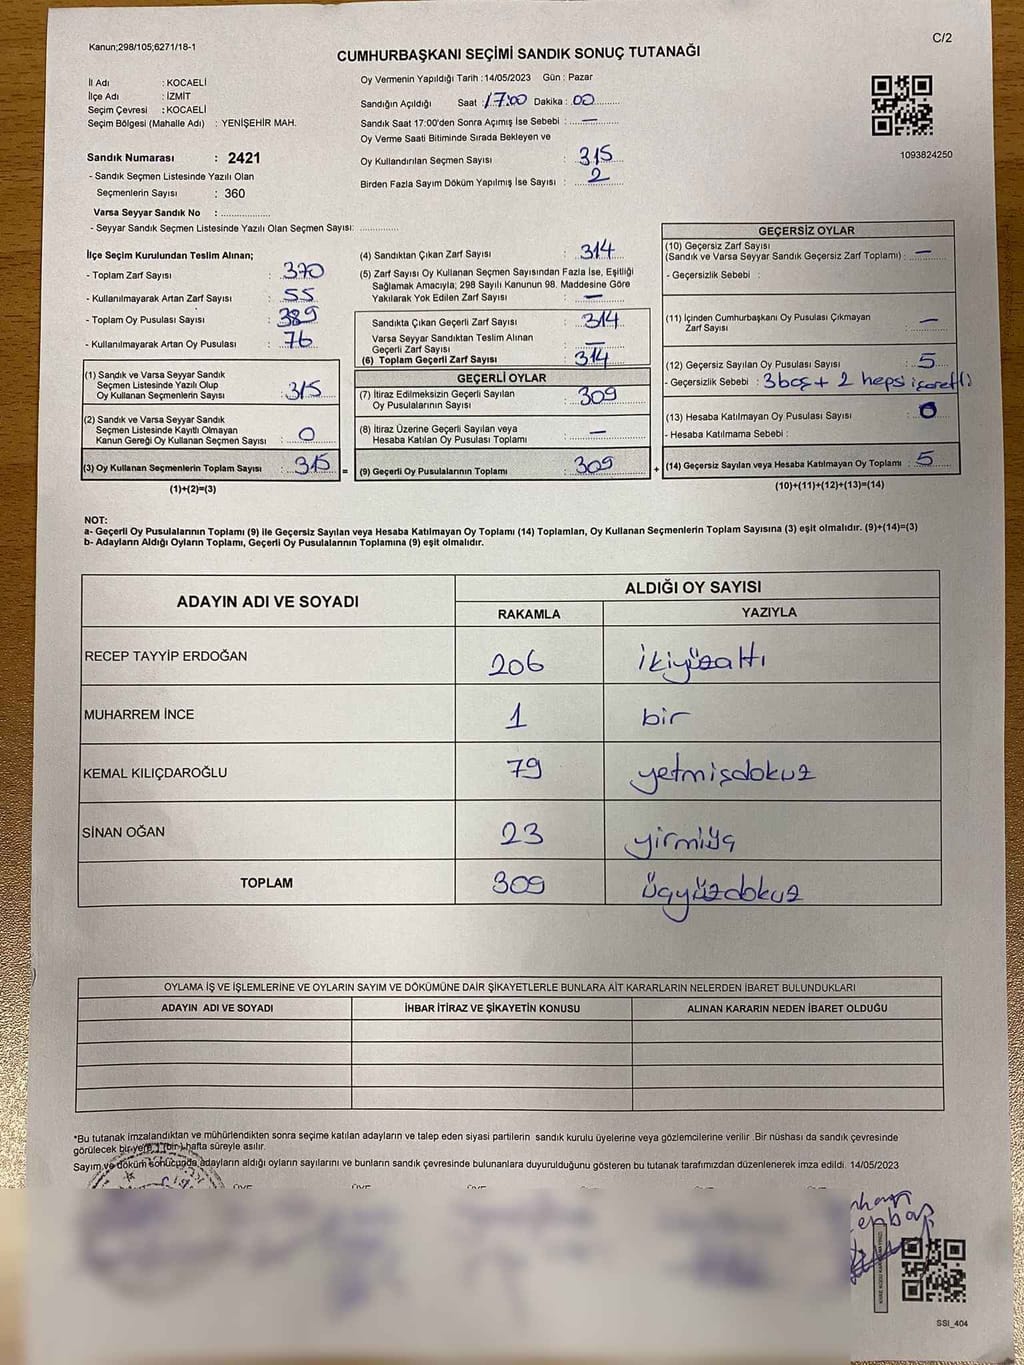 Kanun;298/105;6271/18-1
C/2
CUMHURBAŞKANI SEÇİMİ SANDIK SONUÇ TUTANAĞI
İl Adı : KOCAELİ
İlçe Adı : İZMİT
Seçim Çevresi : KOCAELİ
Seçim Bölgesi (Mahalle Adı) : YENİŞEHİR MAH.
Sandık Numarası : 2421
- Sandık Seçmen Listesinde Yazılı Olan
Seçmenlerin Sayısı : 360
Varsa Seyyar Sandık No : ....................
- Seyyar Sandık Seçmen Listesinde Yazılı Olan Seçmen Sayısı: ...............
Oy Vermenin Yapıldığı Tarih :14/05/2023 Gün : Pazar
Sandığın Açıldığı Saat : 17:00 Dakika : 00
Sandık Saat 17:00'den Sonra Açımış İse Sebebi : —
Oy Verme Saati Bitiminde Sırada Bekleyen ve
Oy Kullandırılan Seçmen Sayısı : 315
Birden Fazla Sayım Döküm Yapılmış İse Sayısı : 2
1093824250
İlçe Seçim Kurulundan Teslim Alınan;
- Toplam Zarf Sayısı : 370
- Kullanılmayarak Artan Zarf Sayısı : 55
- Toplam Oy Pusulası Sayısı : 389
- Kullanılmayarak Artan Oy Pusulası : 76
(1) Sandık ve Varsa Seyyar Sandık
Seçmen Listesinde Yazılı Olup
Oy Kullanan Seçmenlerin Sayısı : 315
(2) Sandık ve Varsa Seyyar Sandık
Seçmen Listesinde Kayıtlı Olmayan
Kanun Gereği Oy Kullanan Seçmen Sayısı : 0
(3) Oy Kullanan Seçmenlerin Toplam Sayısı : 315 =
(1)+(2)=(3)
(4) Sandıktan Çıkan Zarf Sayısı : 314
(5) Zarf Sayısı Oy Kullanan Seçmen Sayısından Fazla İse, Eşitliği
Sağlamak Amacıyla; 298 Sayılı Kanunun 98. Maddesine Göre
Yakılarak Yok Edilen Zarf Sayısı : —
Sandıkta Çıkan Geçerli Zarf Sayısı : 314
Varsa Seyyar Sandıktan Teslim Alınan
Geçerli Zarf Sayısı : —
(6) Toplam Geçerli Zarf Sayısı : 314
GEÇERLİ OYLAR
(7) İtiraz Edilmeksizin Geçerli Sayılan
Oy Pusulalarının Sayısı : 309
(8) İtiraz Üzerine Geçerli Sayılan veya
Hesaba Katılan Oy Pusulası Toplamı : —
(9) Geçerli Oy Pusulalarının Toplamı : 309 +
GEÇERSİZ OYLAR
(10) Geçersiz Zarf Sayısı
(Sandık ve Varsa Seyyar Sandık Geçersiz Zarf Toplamı) : —
- Geçersizlik Sebebi :
(11) İçinden Cumhurbaşkanı Oy Pusulası Çıkmayan
Zarf Sayısı : —
(12) Geçersiz Sayılan Oy Pusulası Sayısı : 5
- Geçersizlik Sebebi : 3 boş + 2 hepsi işaretli
(13) Hesaba Katılmayan Oy Pusulası Sayısı : 0
- Hesaba Katılmama Sebebi :
(14) Geçersiz Sayılan veya Hesaba Katılmayan Oy Toplamı : 5
(10)+(11)+(12)+(13)=(14)
NOT:
a- Geçerli Oy Pusulalarının Toplamı (9) ile Geçersiz Sayılan veya Hesaba Katılmayan Oy Toplamı (14) Toplamları, Oy Kullanan Seçmenlerin Toplam Sayısına (3) eşit olmalıdır. (9)+(14)=(3)
b- Adayların Aldığı Oyların Toplamı, Geçerli Oy Pusulalarının Toplamına (9) eşit olmalıdır.
ADAYIN ADI VE SOYADI
ALDIĞI OY SAYISI
RAKAMLA YAZIYLA
RECEP TAYYİP ERDOĞAN 206 ikiyüzaltı
MUHARREM İNCE 1 bir
KEMAL KILIÇDAROĞLU 79 yetmişdokuz
SİNAN OĞAN 23 yirmiüç
TOPLAM 309 üçyüzdokuz
OYLAMA İŞ VE İŞLEMLERİNE VE OYLARIN SAYIM VE DÖKÜMÜNE DAİR ŞİKAYETLERLE BUNLARA AİT KARARLARIN NELERDEN İBARET BULUNDUKLARI
ADAYIN ADI VE SOYADI İHBAR İTİRAZ VE ŞİKAYETİN KONUSU ALINAN KARARIN NEDEN İBARET OLDUĞU
*Bu tutanak imzalandıktan ve mühürlendikten sonra seçime katılan adayların ve talep eden siyasi partilerin sandık kurulu üyelerine veya gözlemcilerine verilir .Bir nüshası da sandık çevresinde
görülecek bir yere 1 (bir) hafta süreyle asılır.
Sayım ve döküm sonucunda adayların aldığı oyların sayılarını ve bunların sandık çevresinde bulunanlara duyurulduğunu gösteren bu tutanak tarafımızdan düzenlenerek imza edildi. 14/05/2023
SSI_404